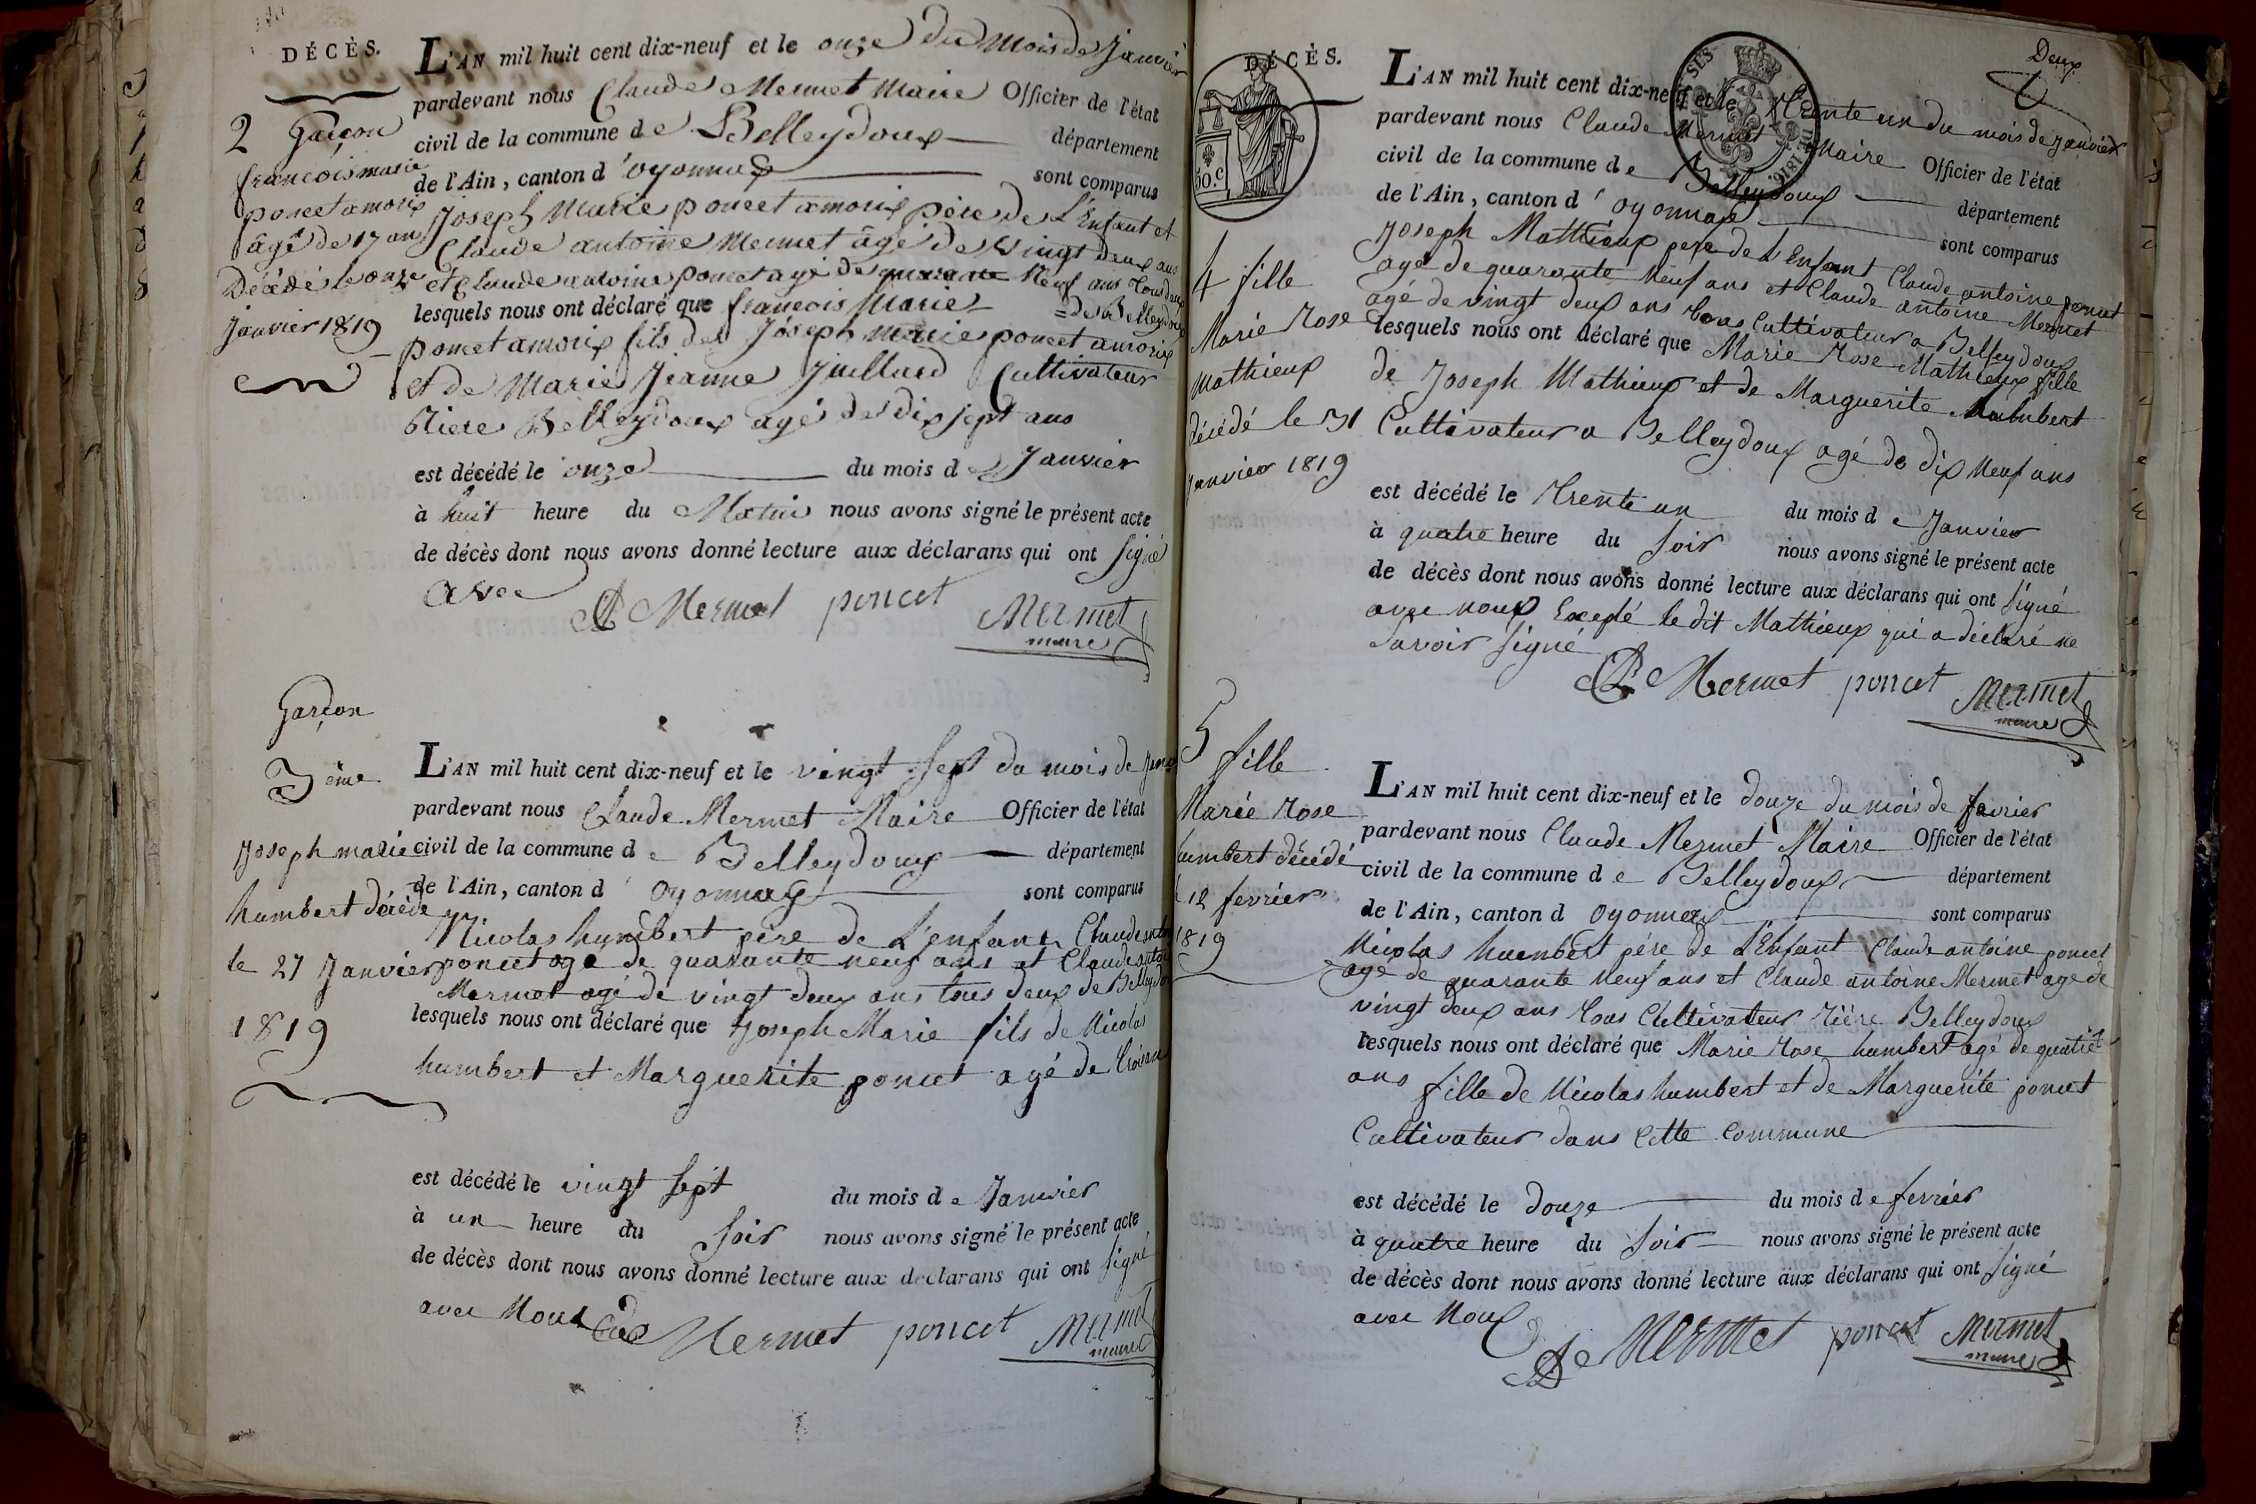 DÉCÈS.
2 Garçon
françois marie
poncet amorix
âgé de 17 ans
Décédé le onze
Janvier 1819
L'AN mil huit cent dix-neuf et le onze du mois de Janvier
pardevant nous Claude Mermet Maire Officier de l'état
civil de la commune de Belleydoux département
de l'Ain, canton d'oyonnax sont comparus
Joseph Marie poncet amorix père de L'Enfant et
Claude antoine Mermet âgé de Vingt deux ans
et Claude antoine poncet agé de quarante Neuf ans tous deux
lesquels nous ont déclaré que françois Marie =de Belleydoux
poncet amorix fils de Joseph Marie poncet amorix
et de Marie Jeanne Juillard Cultivateur
Riere Belleydoux agé de dix sept ans
est décédé le onze du mois de Janvier
à huit heure du Matin nous avons signé le présent acte
de décès dont nous avons donné lecture aux déclarans qui ont signé
avec
Mermet poncet Mermet
maire
Garçon
3ème
Joseph marie
humbert décédé
le 27 Janvier
1819
L'AN mil huit cent dix-neuf et le vingt sept du mois de
pardevant nous Claude Mermet Maire Officier de l'état
civil de la commune de Belleydoux département
de l'Ain, canton d'oyonnax sont comparus
Nicolas humbert père de L'enfant Claude
poncet age de quarante neuf ans et Claude
Mermet agé de vingt deux ans tous deux de Belleydoux
lesquels nous ont déclaré que Joseph Marie fils de Nicolas
humbert et Marguerite poncet agé de trois ans
est décédé le vingt sept du mois de Janvier
à un heure du soir nous avons signé le présent acte
de décès dont nous avons donné lecture aux déclarans qui ont signé
avec Nous
Mermet poncet Mermet
maire
Deux
DÉCÈS.
50.c
SES
1816.
4 fille
Marie Rose
Mathieux
décédé le 31
Janvier 1819
L'AN mil huit cent dix-neuf et le Trente un du mois de Janvier
pardevant nous Claude Mermet Maire Officier de l'état
civil de la commune de Belleydoux département
de l'Ain, canton d'oyonnax sont comparus
Joseph Matthieux pere de L'Enfant Claude antoine poncet
agé de quarante Neuf ans et Claude antoine Mermet
agé de vingt deux ans tous Cultivateur a Belleydoux
lesquels nous ont déclaré que Marie Rose Mathieux fille
de Joseph Mathieux et de Marguerite humbert
Cultivateur a Belleydoux agé de dix Neuf ans
est décédé le Trente un du mois de Janvier
à quatre heure du soir nous avons signé le présent acte
de décès dont nous avons donné lecture aux déclarans qui ont signé
avec nous Excepté le dit Mathieux qui a déclaré ne
savoir signé
Mermet poncet Mermet
maire
5 fille
Marie Rose
humbert décédé
12 fevrier
1819
L'AN mil huit cent dix-neuf et le douze du mois de fevrier
pardevant nous Claude Mermet Maire Officier de l'état
civil de la commune de Belleydoux département
de l'Ain, canton d oyonnax sont comparus
Nicolas humbert pére de L'Enfant Claude antoine poncet
age de quarante Neuf ans et Claude antoine Mermet age de
vingt deux ans tous Cultivateur rière Belleydoux
lesquels nous ont déclaré que Marie Rose humbert agé de quatre
ans fille de Nicolas humbert et de Marguerite poncet
Cultivateur dans cette Commune
est décédé le douze du mois de fevrier
à quatre heure du soir nous avons signé le présent acte
de décès dont nous avons donné lecture aux déclarans qui ont signé
avec Nous
Mermet poncet Mermet
maire